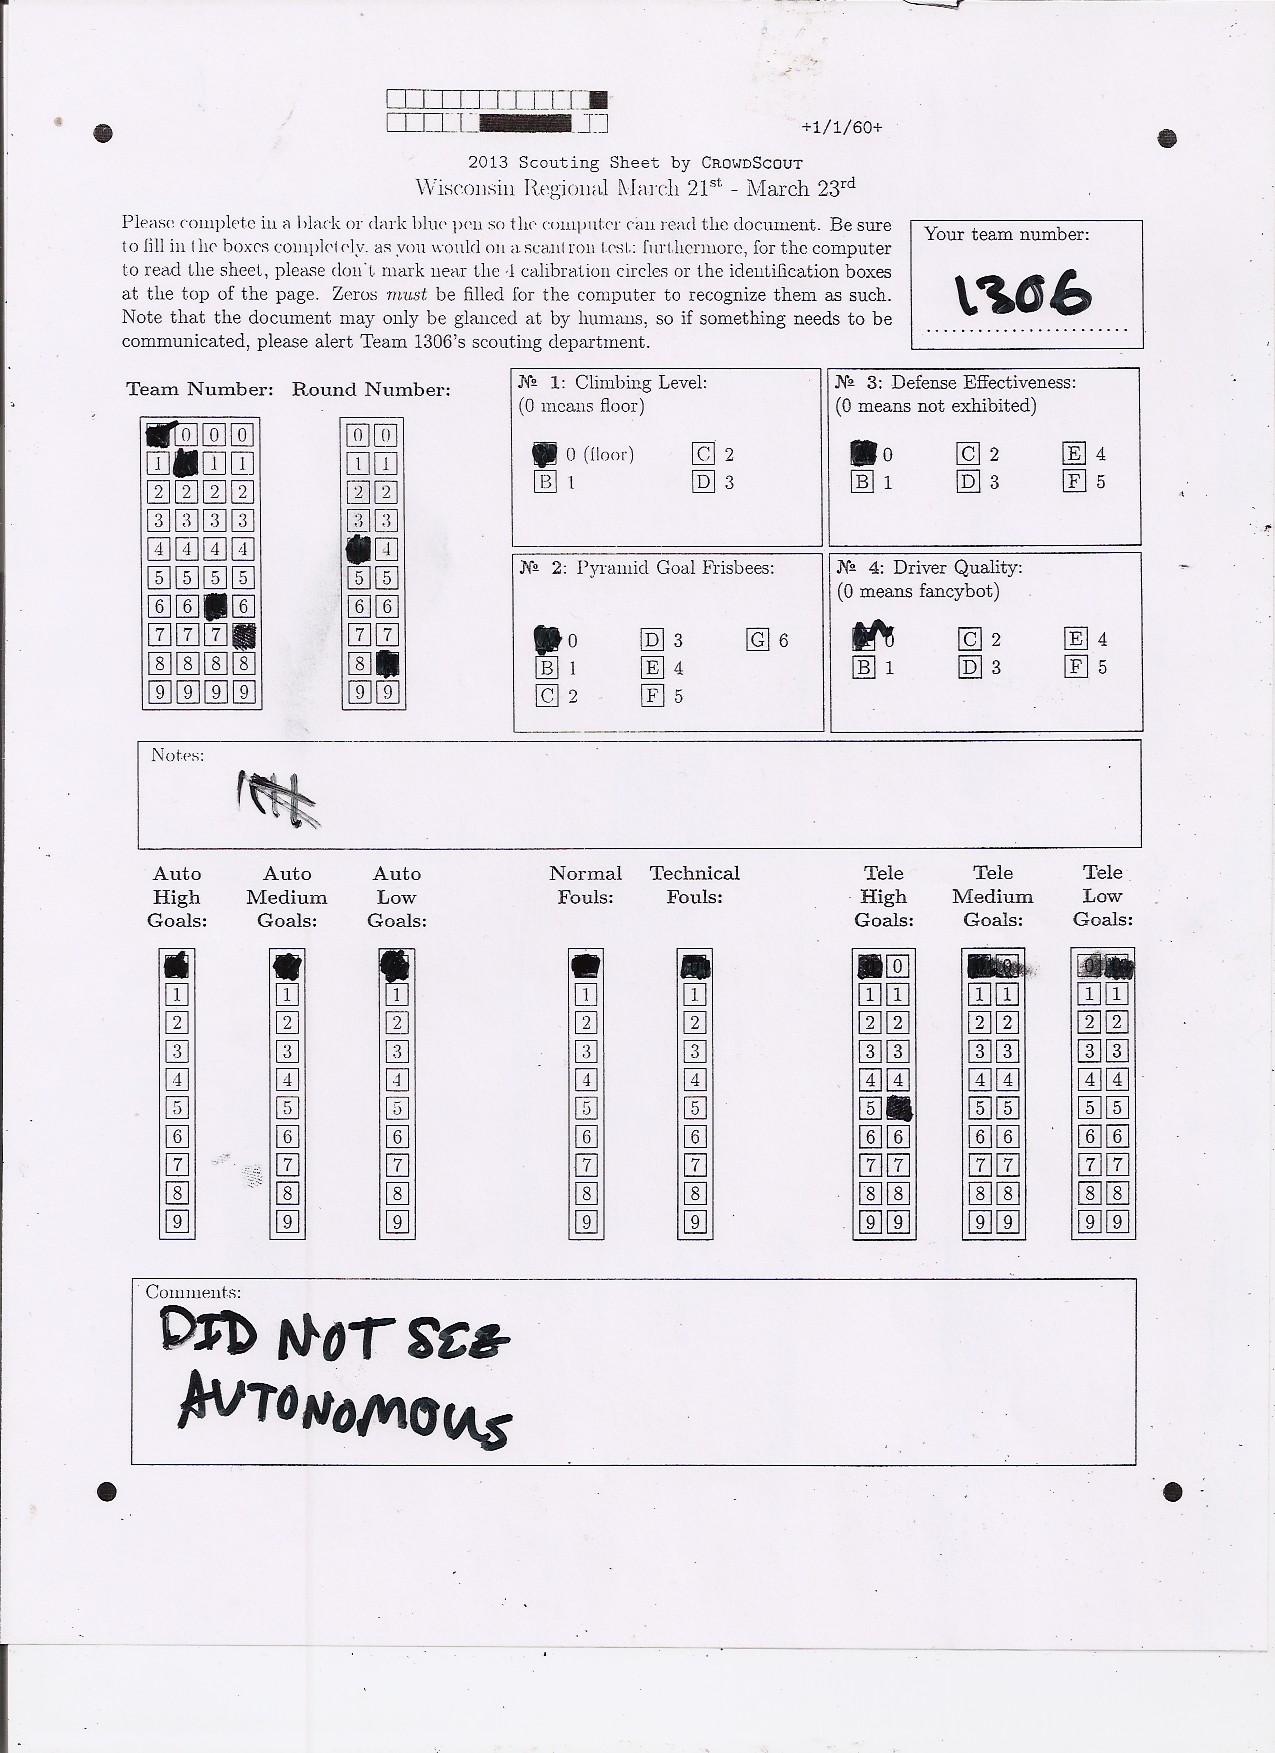 +1/1/60+
2013 Scouting Sheet by CROWDSCOUT
Wisconsin Regional March 21st - March 23rd
Please complete in a black or dark blue pen so the computer can read the document. Be sure
to fill in the boxes completely, as you would on a scantron test; furthermore, for the computer
to read the sheet, please don't mark near the 4 calibration circles or the identification boxes
at the top of the page. Zeros must be filled for the computer to recognize them as such.
Note that the document may only be glanced at by humans, so if something needs to be
communicated, please alert Team 1306's scouting department.
Your team number:
1306
Team Number: Round Number:
0 0 0 0 0
1 1 1 1 1
2 2 2 2 2 2
3 3 3 3 3 3
4 4 4 4 4
5 5 5 5 5 5
6 6 6 6 6
7 7 7 7 7
8 8 8 8 8
9 9 9 9 9 9
№ 1: Climbing Level:
(0 means floor)
0 (floor) C 2
B 1 D 3
№ 3: Defense Effectiveness:
(0 means not exhibited)
0 C 2 E 4
B 1 D 3 F 5
№ 2: Pyramid Goal Frisbees:
0 D 3 G 6
B 1 E 4
C 2 F 5
№ 4: Driver Quality:
(0 means fancybot)
0 C 2 E 4
B 1 D 3 F 5
Notes:
Auto High Goals:
Auto Medium Goals:
Auto Low Goals:
Normal Fouls:
Technical Fouls:
Tele High Goals:
Tele Medium Goals:
Tele Low Goals:
0 0 0
1 1 1 1 1 1 1 1 1 1 1
2 2 2 2 2 2 2 2 2 2 2
3 3 3 3 3 3 3 3 3 3 3
4 4 4 4 4 4 4 4 4 4 4
5 5 5 5 5 5 5 5 5 5
6 6 6 6 6 6 6 6 6 6 6
7 7 7 7 7 7 7 7 7 7 7
8 8 8 8 8 8 8 8 8 8 8
9 9 9 9 9 9 9 9 9 9 9
Comments:
DID NOT SEE
AUTONOMOUS